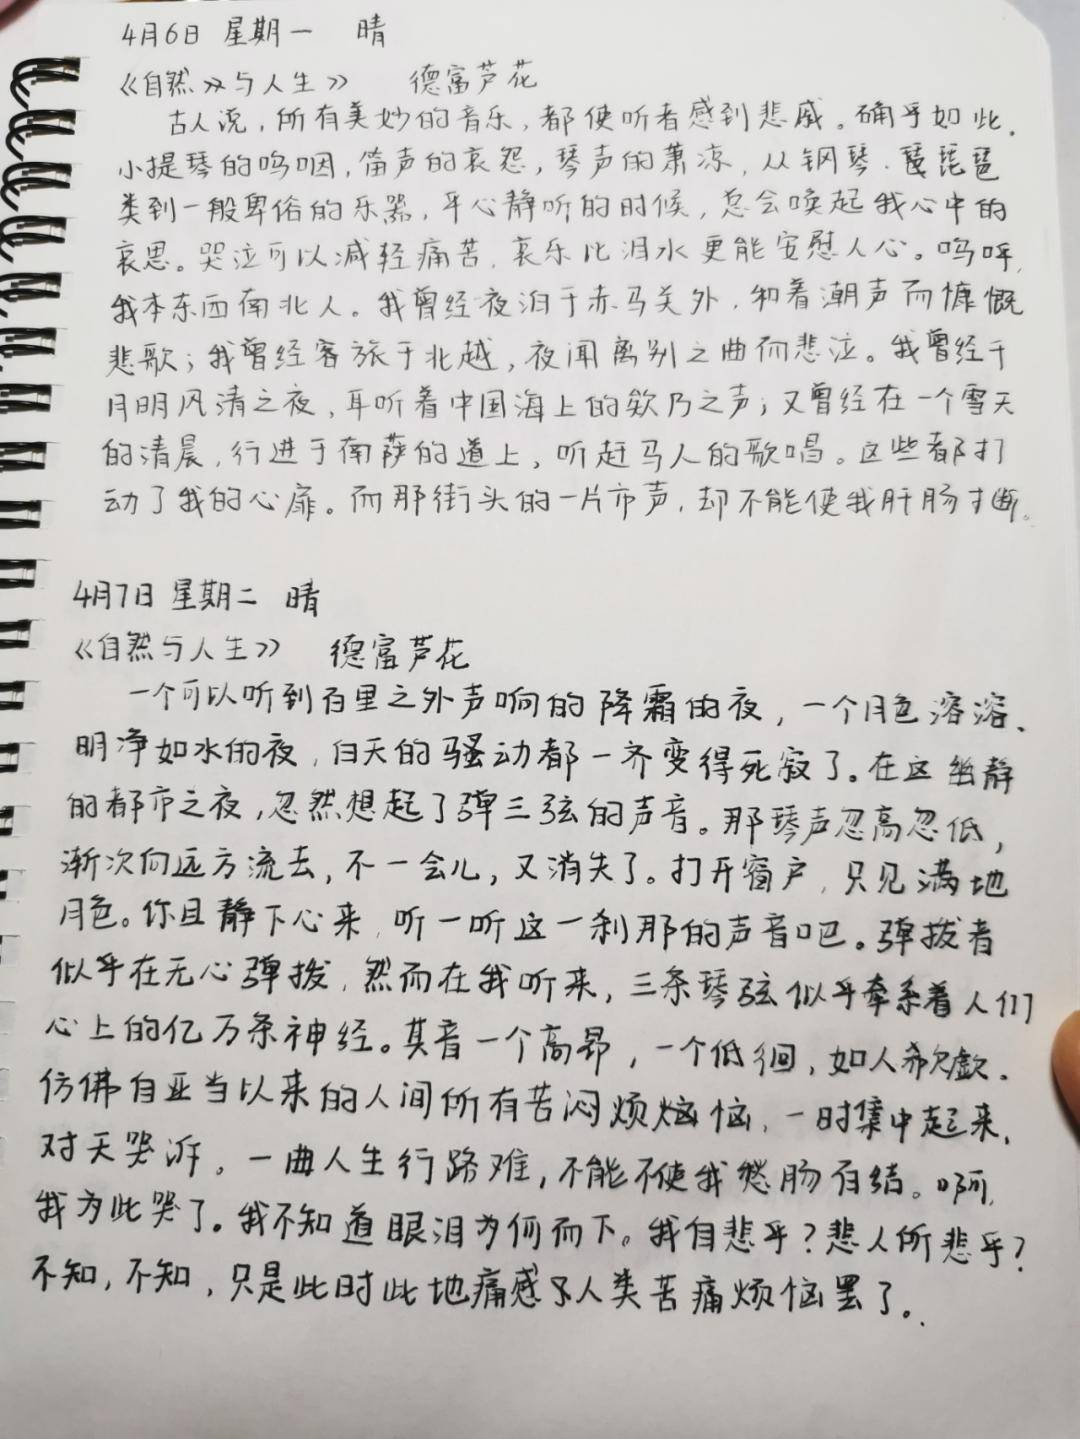 4月6日 星期一 晴
《自然》与人生》 德富芦花
古人说，所有美妙的音乐，都使听者感到悲戚。确乎如此，
小提琴的呜咽，笛声的哀怨，琴声的萧凉，从钢琴、琵琶
类到一般卑俗的乐器，平心静听的时候，总会唤起我心中的
哀思。哭泣可以减轻痛苦，哀乐比泪水更能安慰人心。呜呼，
我本东西南北人。我曾经夜泊于赤马关外，和着潮声而慷慨
悲歌；我曾经客旅于北越，夜闻离别之曲而悲泣。我曾经于
月明风清之夜，耳听着中国海上的欸乃之声；又曾经在一个雪天
的清晨，行进于南萨的道上，听赶马人的歌唱。这些都打
动了我的心扉。而那街头的一片市声，却不能使我肝肠寸断。
4月7日 星期二 晴
《自然与人生》 德富芦花
一个可以听到百里之外声响的降霜的夜，一个月色溶溶、
明净如水的夜，白天的骚动都一齐变得死寂了。在这幽静
的都市之夜，忽然想起了弹三弦的声音。那琴声忽高忽低，
渐次向远方流去，不一会儿，又消失了。打开窗户，只见满地
月色。你且静下心来，听一听这一刹那的声音吧。弹拨者
似乎在无心弹拨，然而在我听来，三条琴弦似乎牵系着人们
心上的亿万条神经。其音一个高昂，一个低徊，如人欷歔。
仿佛自亚当以来的人间所有苦闷烦恼恼，一时集中起来，
对天哭诉。一曲人生行路难，不能不使我愁肠百结。啊，
我为此哭了。我不知道眼泪为何而下。我自悲乎？悲人所悲乎？
不知，不知，只是此时此地痛感了人类苦痛烦恼罢了。